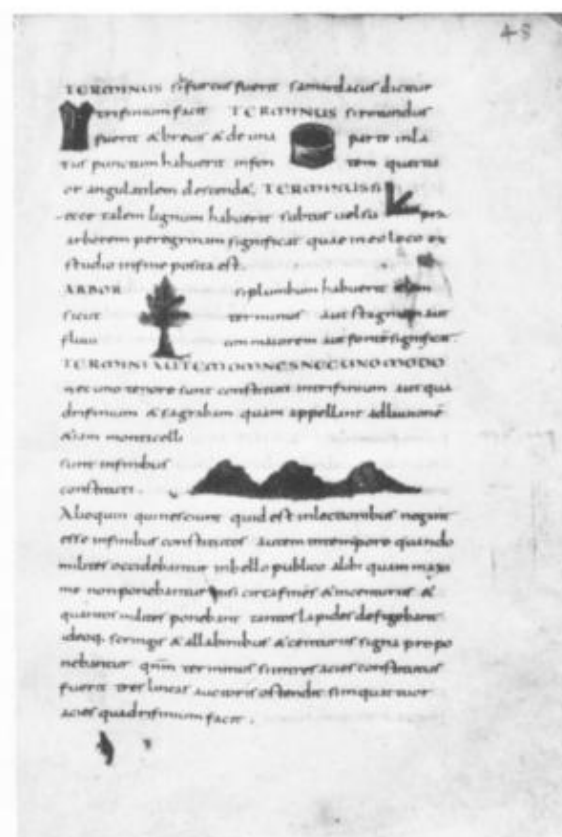 48
TERMINUS si furcus fuerit samardacus dicitur
trifinium facit TERMINUS si rotundus
fuerit & brevis & de una parte in la
tus punctum habuerit in fon tem quattu
or angularilem descendit, TERMINUS si
ecce talem lignum habuerit subtus vel su per
arborem peregrinam significat quae in eo loco ex
studio in fine posita est.
ARBOR si plumbum habuerit
sicut terminus aut stagnum aut
flum maiorem aut fonte significat.
TERMINI AUTEM OMNES NEC UNO MODO
nec uno tenore sunt constituti in trifinium aut qua
drifinium & sagrabam quam appellant adluvione
&iam monticelli
sunt in finibus
constituti.
Alioquin qui nesciunt quid est in lectionibus negant
esse in finibus constitutos autem in tempore quando
milites occidebantur in bello publico alibi quam maxi
me non ponebantur nisi circa fines & in centuriis &
quantos milites ponebant tantos lapides defigebant
ideoq. scringis & allabinibus & centuriis signa propo
nebantur terminus si in tres acies constitutus
fuerit tres lineas auctoris ostendit si in quattuor
acies quadrifinium facit.